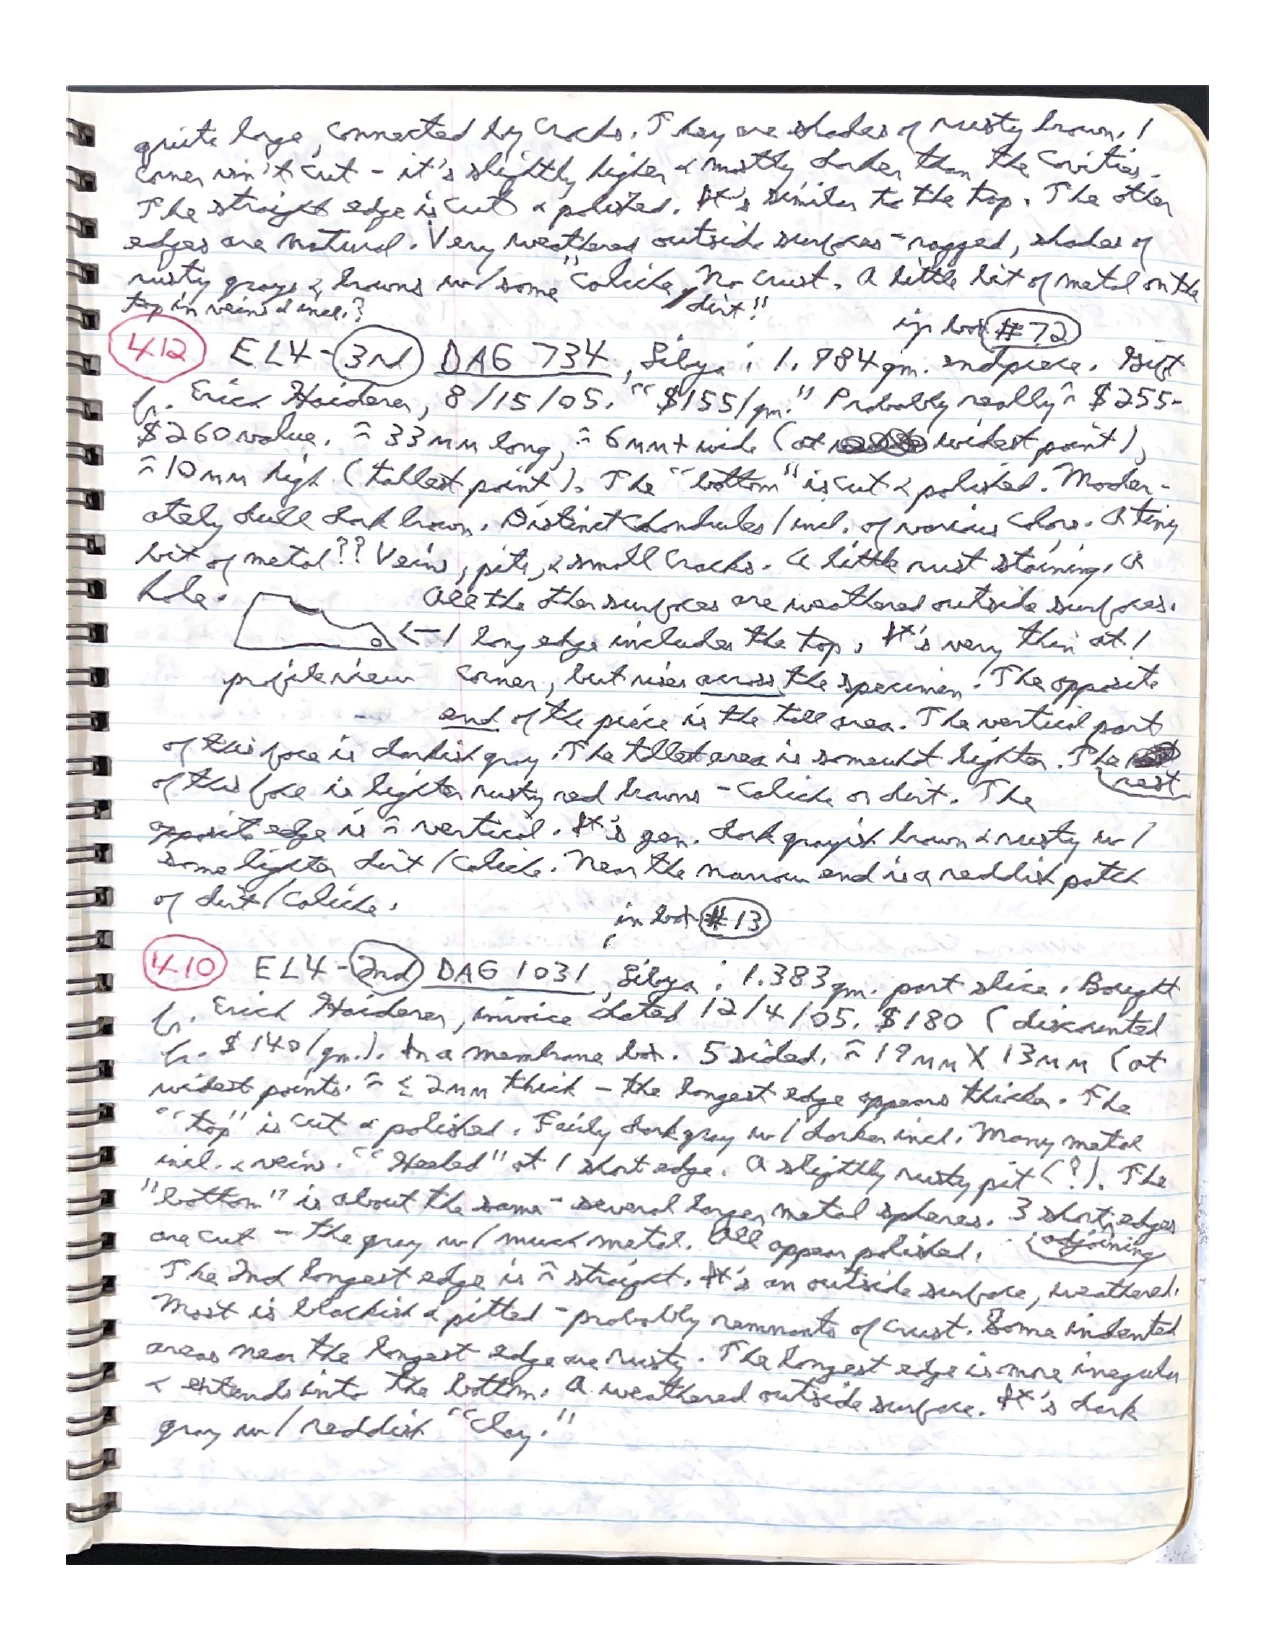 quite large, connected by cracks. They are shades of rusty brown. 1
corner isn't cut - it's slightly higher & mostly darker than the cavities.
The straight edge is cut & polished. It's similar to the top. The other
edges are natural. Very weathered outside surfaces - ragged, shades of
rusty grays & browns w/some "caliche/dirt!" No crust. A little bit of metal on the
top in veins & incl.?
in box #72
412 EL4-3rd DAG 734, Libya: 1.984gm. endpiece. Gift
fr. Erich Haiderer, 8/15/05. "$155/gm." Probably really ≈ $255-
$260 value. ≈ 33mm long, ≈ 6mm+ wide (at widest point),
≈ 10mm high (tallest point). The "bottom" is cut & polished. Moder-
ately dull dark brown. Distinct chondrules/incl. of various colors. A tiny
bit of metal?? Veins, pits, & small cracks. A little rust staining. A
hole. All the other surfaces are weathered outside surfaces.
←1 long edge includes the top. It's very thin at 1
profile view corner, but rises across the specimen. The opposite
end of the piece is the tall area. The vertical part
of this face is darkish gray. The tallest area is somewht lighter. The rest
of this face is lighter rusty red browns - caliche or dirt. The
opposite edge is ≈ vertical. It's gen. dark grayish brown & rusty w/
some lighter dirt/caliche. Near the narrow end is a reddish patch
of dirt/caliche.
in box #13
410 EL4-2nd DAG 1031, Libya: 1.383gm. part slice. Bought
fr. Erich Haiderer, invoice dated 12/4/05. $180 (discounted
fr. $140/gm.). In a membrane box. 5 sided. ≈ 19mm X 13mm (at
widest points. ≈ ≤ 2mm thick - the longest edge appears thicker. The
"top" is cut & polished. Fairly dark gray w/darker incl. Many metal
incl. & veins. "Healed" at 1 short edge. A slightly rusty pit (?). The
"bottom" is about the same - several larger metal spheres. 3 short, adjoining edges
are cut - the gray w/much metal. All appear polished.
The 2nd longest edge is ≈ straight. It's an outside surface, weathered.
Most is blackish & pitted - probably remnants of crust. Some indented
areas near the longest edge are rusty. The longest edge is more irregular
& extends into the bottom. A weathered outside surface. It's dark
gray w/reddish "clay."